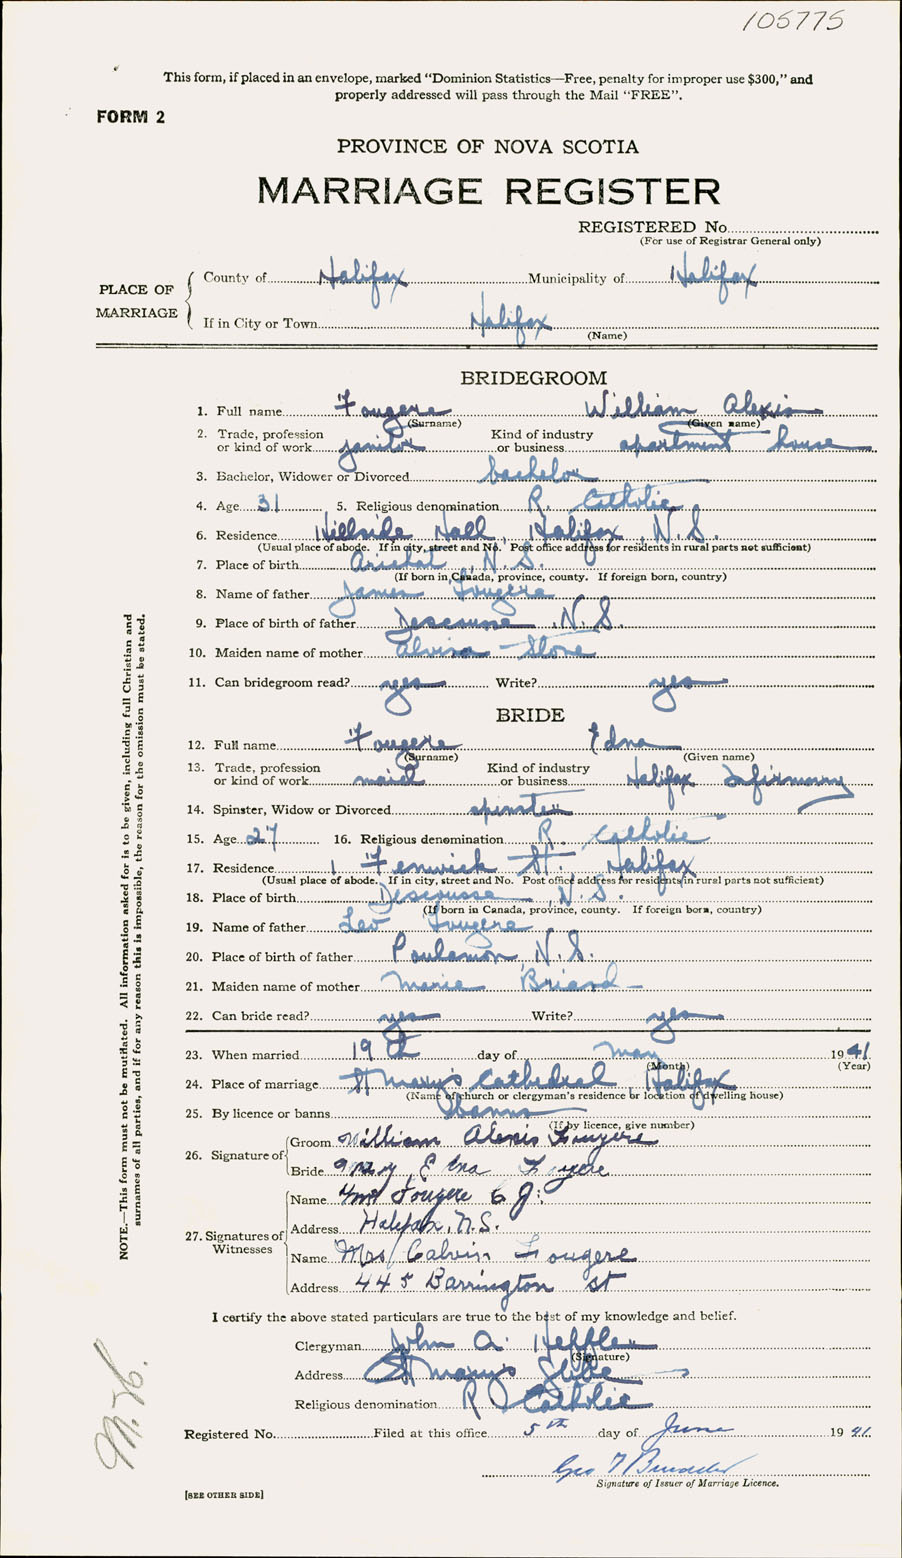 105775
This form, if placed in an envelope, marked “Dominion Statistics—Free, penalty for improper use $300,” and
properly addressed will pass through the Mail “FREE”.
FORM 2
PROVINCE OF NOVA SCOTIA
MARRIAGE REGISTER
REGISTERED No.
(For use of Registrar General only)
PLACE OF MARRIAGE
County of Halifax Municipality of Halifax
If in City or Town Halifax
(Name)
BRIDEGROOM
1. Full name Fougere William Alexis
(Surname) (Given name)
2. Trade, profession Kind of industry
or kind of work janitor or business apartment house
3. Bachelor, Widower or Divorced bachelor
4. Age 31 5. Religious denomination R. Catholic
6. Residence Hillside Hall, Halifax, N.S.
(Usual place of abode. If in city, street and No. Post office address for residents in rural parts not sufficient)
7. Place of birth Arichat, N.S.
(If born in Canada, province, county. If foreign born, country)
8. Name of father James Fougere
9. Place of birth of father Descousse, N.S.
10. Maiden name of mother Alvina Stone
11. Can bridegroom read? yes Write? yes
BRIDE
12. Full name Fougere Edna
(Surname) (Given name)
13. Trade, profession Kind of industry
or kind of work maid or business Halifax Infirmary
14. Spinster, Widow or Divorced spinster
15. Age 27 16. Religious denomination R. Catholic
17. Residence 1 Fenwick St. Halifax
(Usual place of abode. If in city, street and No. Post office address for residents in rural parts not sufficient)
18. Place of birth Descousse, N.S.
(If born in Canada, province, county. If foreign born, country)
19. Name of father Leo Fougere
20. Place of birth of father Poulamon, N.S.
21. Maiden name of mother Marie Briand
22. Can bride read? yes Write? yes
23. When married 19th day of May 1941
(Month) (Year)
24. Place of marriage St Mary's Cathedral, Halifax
(Name of church or clergyman's residence or location of dwelling house)
25. By licence or banns Banns
(If by licence, give number)
26. Signature of
Groom William Alexis Fougere
Bride Mary Edna Fougere
27. Signatures of Witnesses
Name Fougere C J.
Address Halifax, N.S.
Name Mrs Calvin Fougere
Address 445 Barrington St
I certify the above stated particulars are true to the best of my knowledge and belief.
Clergyman John A. Heffler
(Signature)
Address St Mary's Glebe
Religious denomination R Catholic
Registered No. Filed at this office 5th day of June 1941
Geo
Signature of Issuer of Marriage Licence.
[SEE OTHER SIDE]
NOTE.—This form must not be mutilated. All information asked for is to be given, including full Christian and
surnames of all parties, and if for any reason this is impossible, the reason for the omission must be stated.